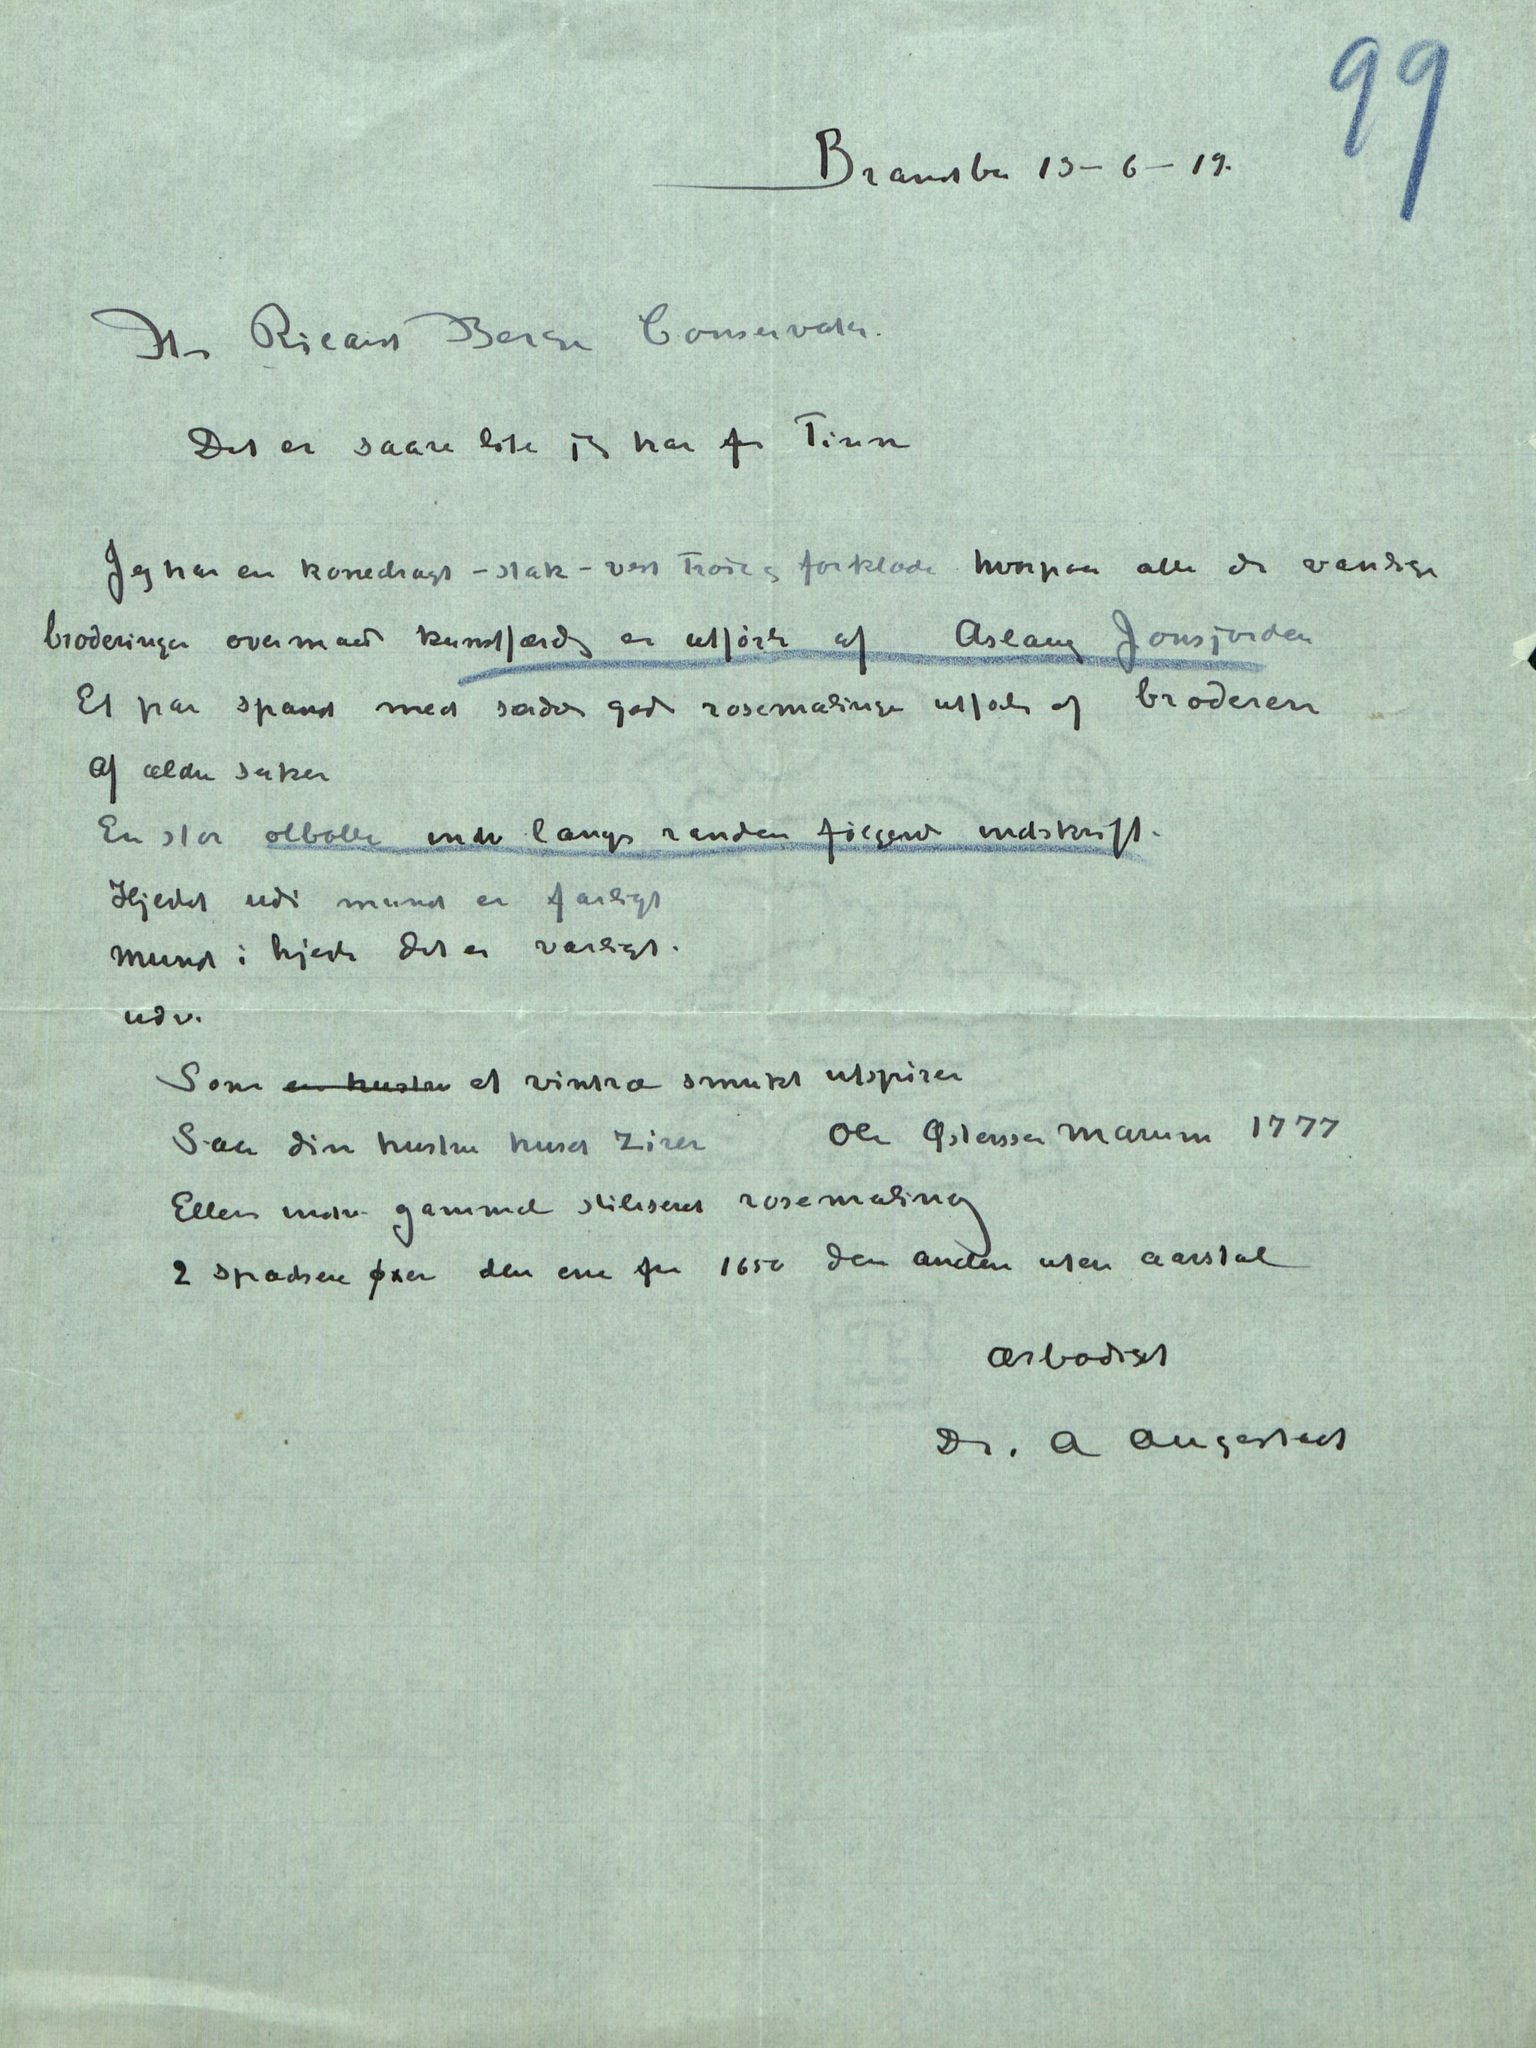 99
Brandsbu 13-6-19.
Hr Ricard Berge Conservator.
Det er saare lite jeg har fra Tinn
Jeg har en konedragt - stak - vest trøie og forklæde hvorpaa alle de vanlige
broderinger overmaade kunstfærdig er utført af Aslaug Jonsjorden
Et par spand med særdeles god rosemalinge utført af broderen
Af ældre saker
En stor ølbolle med langs randen følgende indskrift.
Hjertet udi mund er farligt
Mund i hjerte det er varligt.
udv.
Som en hustru et vintræ smukt utspirer
Saa din hustru huset zirer Ole Østensen Marum 1777
Ellers indv. gammel stiliseret rosemaling
2 spadsere øxer den ene fra 1650 den anden uten aarstal
Ærbødigst
Dr. A Augestad